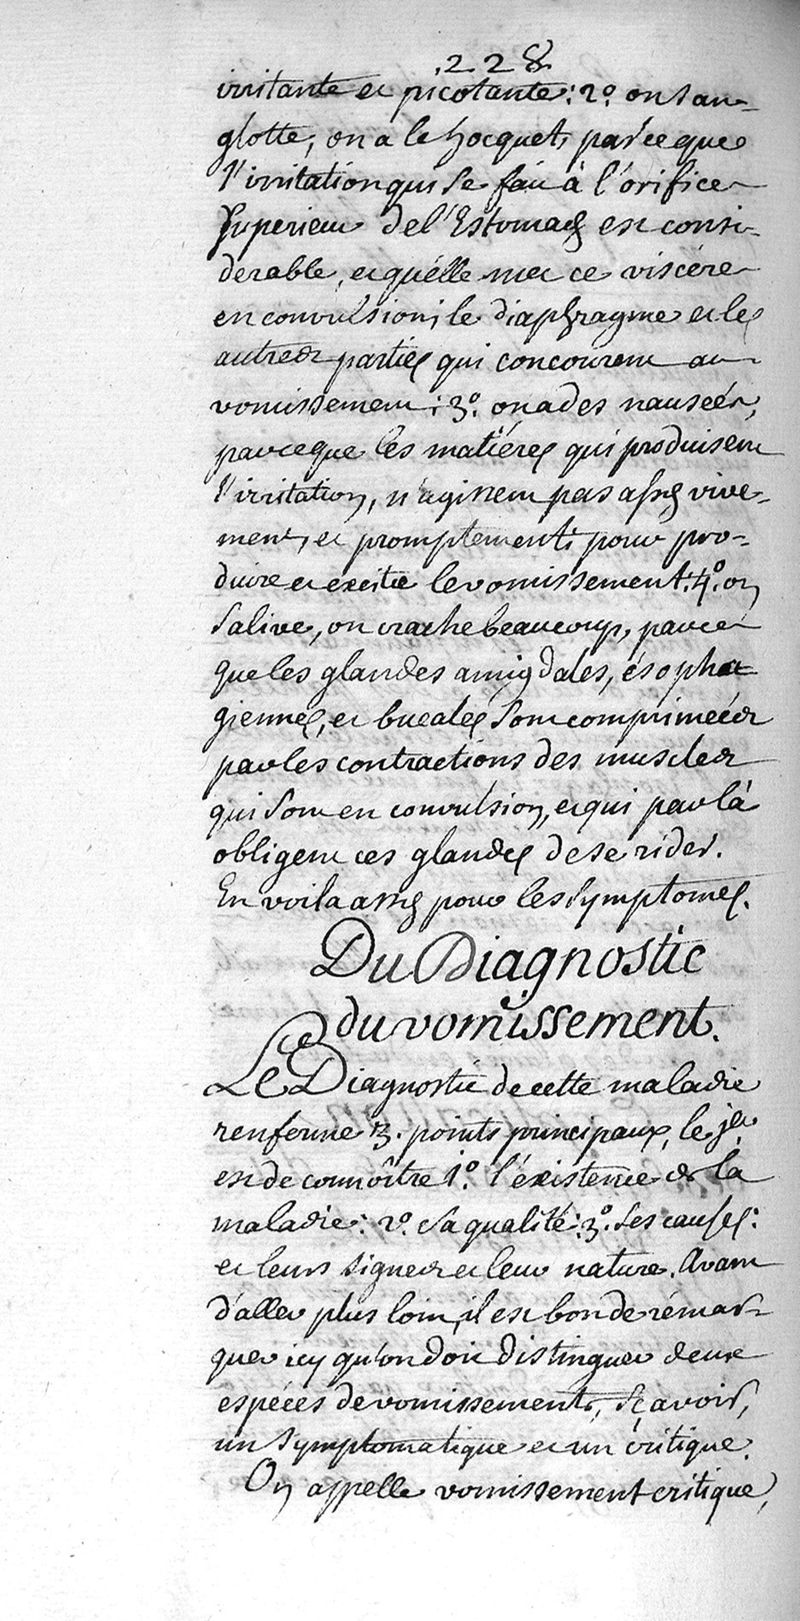 .228.
irritante et picotante: 2.° on san-
glotte, on a le hocquet, parce que
l'irritation qui se fait à l'orifice
superieur de l'Estomach est consi-
derable, et qu'élle met ce viscére
en convulsion; le diaphragme et les
autres parties qui concourent au
vomissement: 3.° on a des nausées,
parce que les matiéres qui produisent
l'irritation, n'agissent pas assés vive-
ment, et promptement, pour pro-
duire et exciter le vomissement: 4.° on
salive, on crache beaucoup, parce
que les glandes amigdales, ésopha
giennes, et bucales sont compriméés
par les contractions des muscles
qui sont en convulsion, et qui par là
obligent ces glandes de se rider.
En voila assés pour les symptomes.
Du Diagnostic
du vomissement.
Le Diagnostic de cette maladie
renferme 3. points principaux, le 1er
est de connoître 1.° l'éxistence de la
maladie: 2.° sa qualité: 3.° ses causes:
et leurs signes et leur nature. Avant
d'aller plus loin, il est bon de rémar-
quer icy qu'on doit distinguer deux
espéces de vomissements, sçavoir,
un symptomatique et un critique.
On appelle vomissement critique,